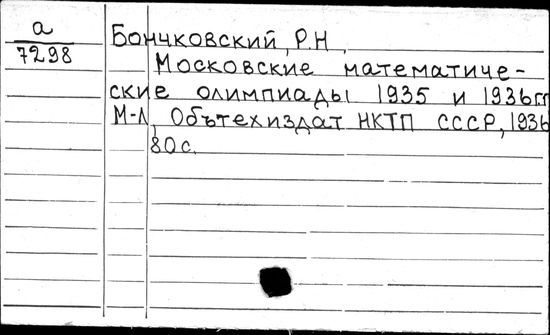 а
7298
Бончковский, Р.Н.
Московские математиче-
ские олимпиады 1935 и 1936 гг
М-Л, Обътехиздат НКТП СССР, 1936
80 с.